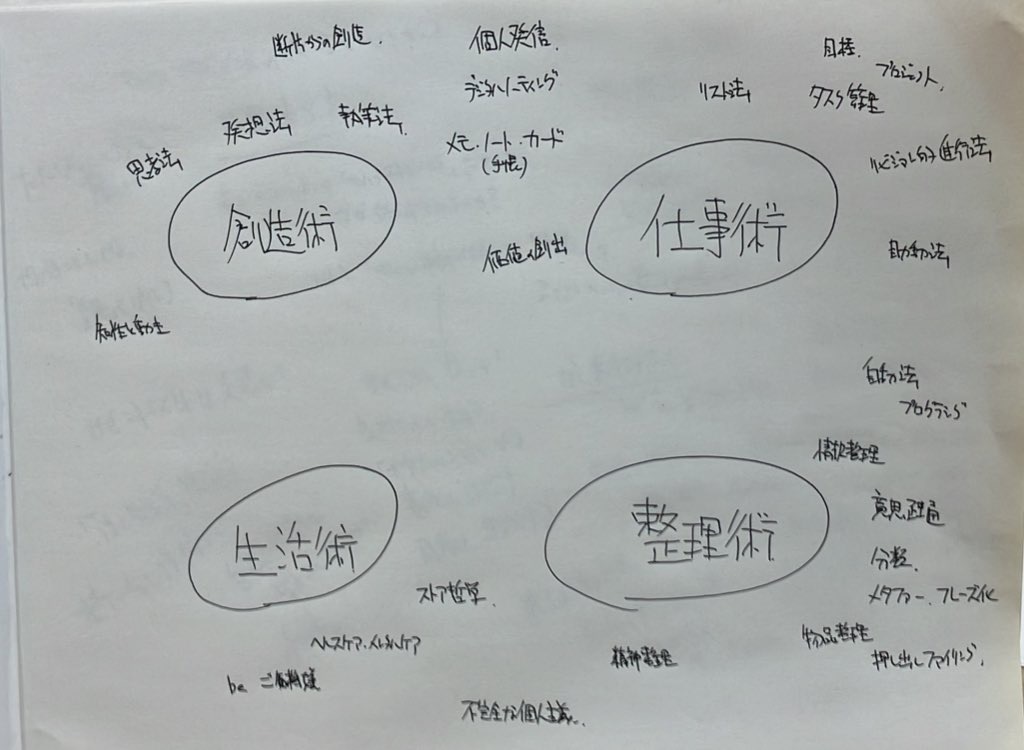 断片からの創造.
個人発信.
目標.
プロジェクト.
デジタルノーティング
リスト法
タスク管理
発想法
執筆法.
思考法
メモ・ノート・カード
(手帳)
進行法
創造術
仕事術
価値の創出
自動法
知性と
プログラミング
情報整理
生活術
整理術
意思疎通
分類.
ストア哲学.
メタファー、フレーズ化
ヘルスケア・メンタルケア
精神整理
物品整理
押し出しファイリング.
be ご機嫌
不完全な個人主義.